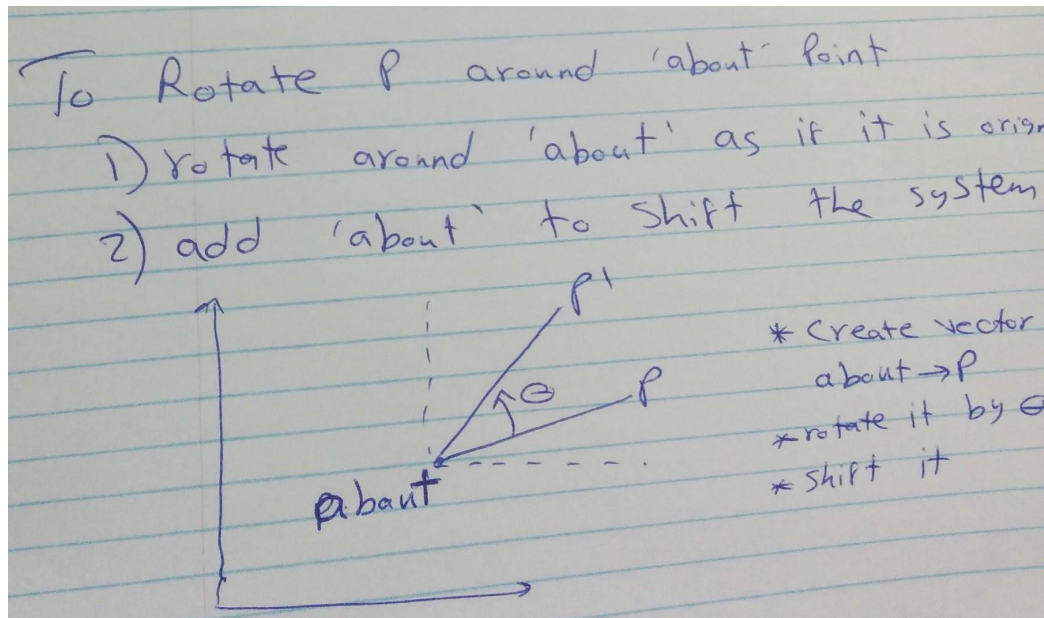 To Rotate P around 'about' Point
1) rotate around 'about' as if it is origin
2) add 'about' to shift the system
P'
* Create vector
about → P
θ
P
* rotate it by θ
* shift it
about